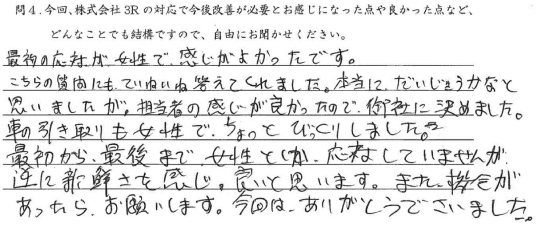 問4.今回、株式会社3Rの対応で今後改善が必要とお感じになった点や良かった点など、
どんなことでも結構ですので、自由にお聞かせください。
最初の応対が女性で、感じがよかったです。
こちらの質問にも、ていねいね答えてくれました。本当に、だいじょうかなと
思いましたが、担当者の感じが良かったので、御社に決めました。
車の引き取りも女性で、ちょっとびっくりしました。
最初から、最後まで、女性としか、応対していませんが、
逆に新鮮さを感じ、良いと思います。また、機会が
あったら、お願いします。今回は、ありがとうございました。